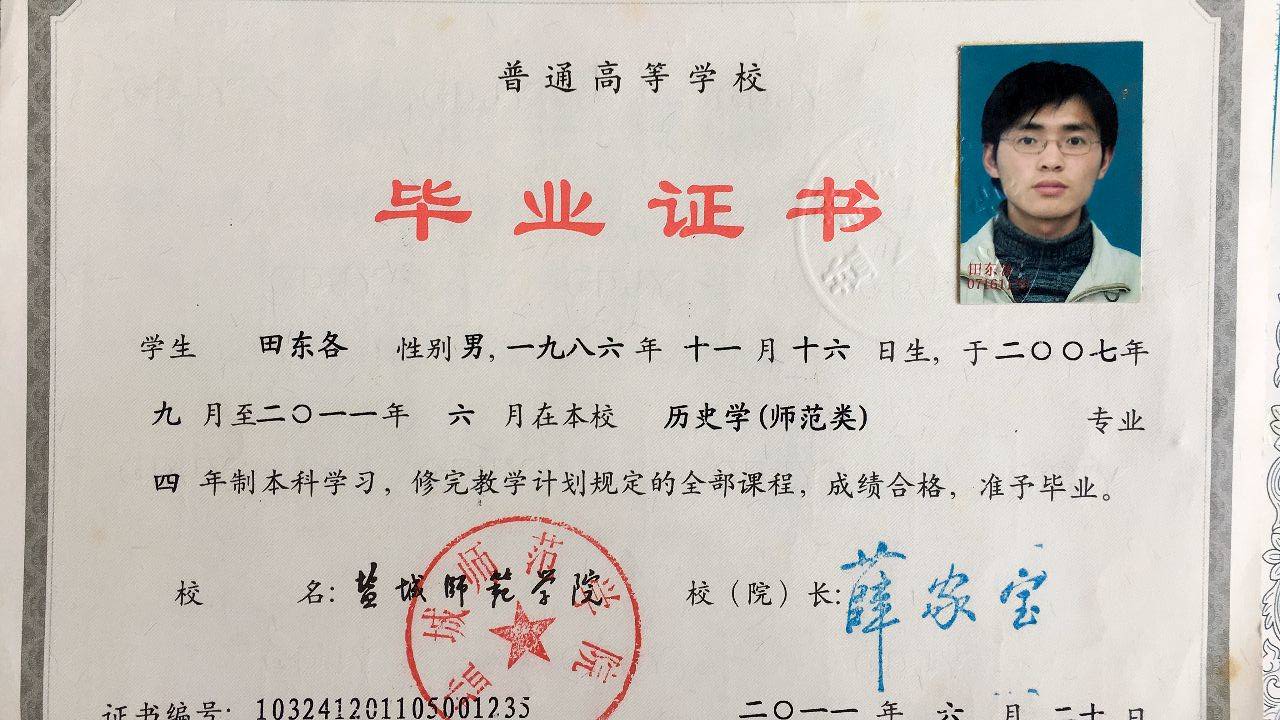 普通高等学校
毕业证书
田东
07161
学生 田东各 性别 男, 一九八六 年 十一 月 十六 日生, 于 二〇〇七 年
九 月至 二〇一一 年 六 月在本校 历史学(师范类) 专业
四 年制本科学习, 修完教学计划规定的全部课程, 成绩合格, 准予毕业。
校 名: 盐城师范学院 校（院）长: 薛家宝
盐城师范学院
证书编号: 103241201105001235 二〇一一 年 六 月 二十 日